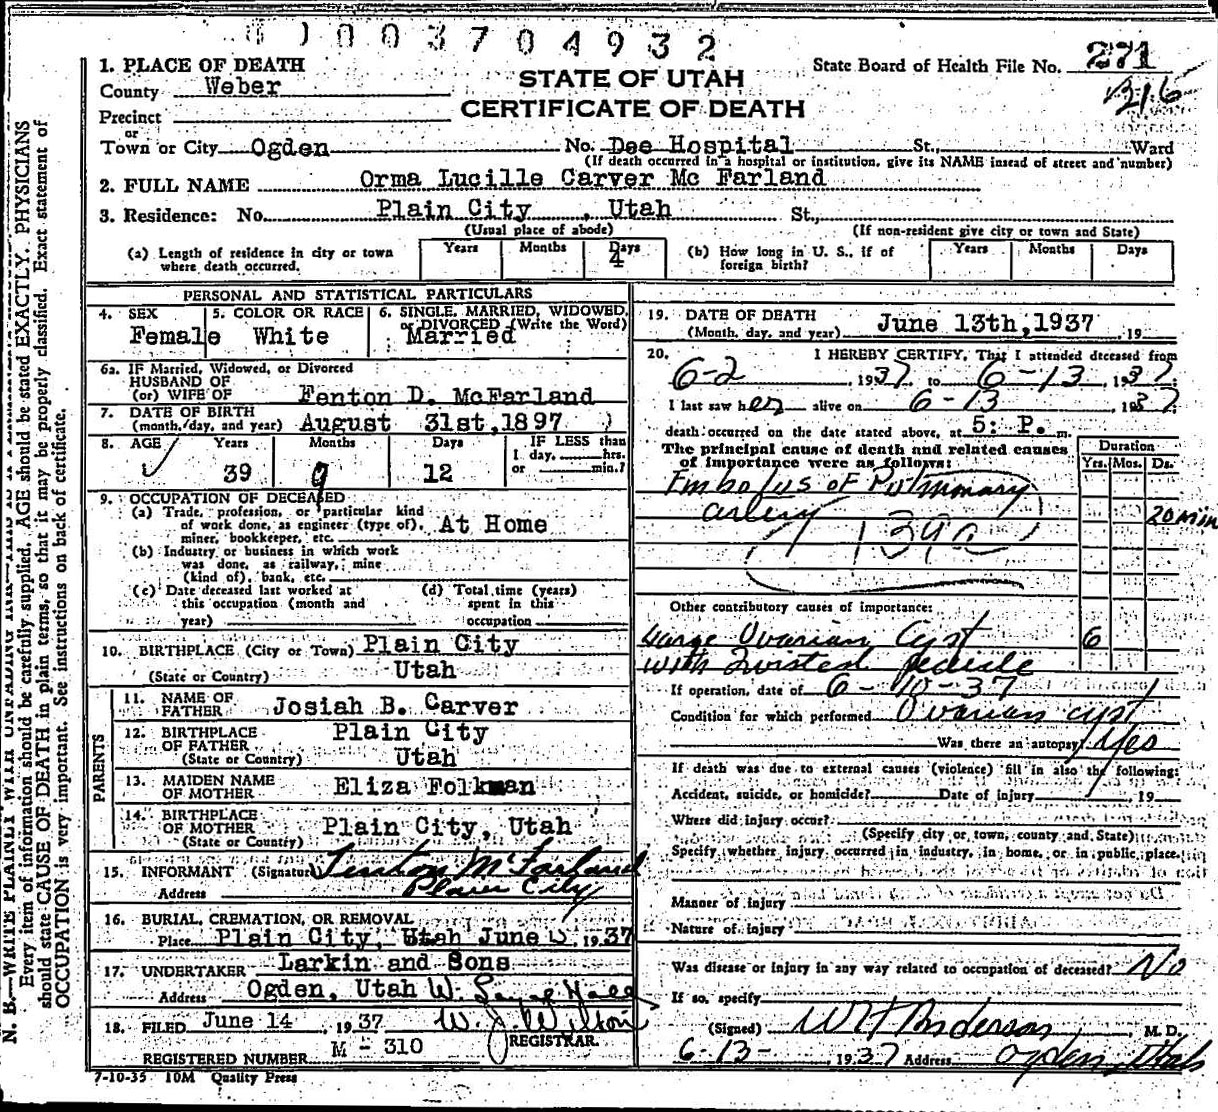 0 0 0 0 3 7 0 4 9 3 2
1. PLACE OF DEATH
County Weber
Precinct
or
Town or City Ogden No. Dee Hospital St., Ward
(If death occurred in a hospital or institution, give its NAME instead of street and number)
STATE OF UTAH
CERTIFICATE OF DEATH
State Board of Health File No. 271
216
2. FULL NAME Orma Lucille Carver Mc Farland
3. Residence: No. Plain City, Utah St.,
(Usual place of abode) (If non-resident give city or town and State)
(a) Length of residence in city or town where death occurred. Years Months Days 4
(b) How long in U. S., if of foreign birth? Years Months Days
PERSONAL AND STATISTICAL PARTICULARS
4. SEX Female
5. COLOR OR RACE White
6. SINGLE, MARRIED, WIDOWED, or DIVORCED (Write the Word) Married
6a. IF Married, Widowed, or Divorced
HUSBAND OF
(or) WIFE OF Fenton D. McFarland
7. DATE OF BIRTH
(month, day, and year) August 31st, 1897
8. AGE Years 39 Months 9 Days 12 IF LESS than
1 day, hrs.
or min.?
9. OCCUPATION OF DECEASED
(a) Trade, profession, or particular kind
of work done, as engineer (type of), At Home
miner, bookkeeper, etc.
(b) Industry or business in which work
was done, as railway, mine
(kind of), bank, etc.
(c) Date deceased last worked at
this occupation (month and
year)
(d) Total time (years)
spent in this
occupation
10. BIRTHPLACE (City or Town) Plain City
(State or Country) Utah
PARENTS
11. NAME OF
FATHER Josiah B. Carver
12. BIRTHPLACE Plain City
OF FATHER
(State or Country) Utah
13. MAIDEN NAME
OF MOTHER Eliza Folkman
14. BIRTHPLACE
OF MOTHER Plain City, Utah
(State or Country)
15. INFORMANT (Signature) Fenton McFarland
Address Plain City
16. BURIAL, CREMATION, OR REMOVAL
Place Plain City, Utah June , 1937
17. UNDERTAKER Larkin and Sons
Address Ogden, Utah
18. FILED June 14, 1937 W. J. Wilton
REGISTRAR.
REGISTERED NUMBER M - 310
7-10-35 10M Quality Press
19. DATE OF DEATH
(Month, day, and year) June 13th, 1937, 19
20. I HEREBY CERTIFY, That I attended deceased from
6-2, 1937 to 6-13, 1937.
I last saw her alive on 6-13 1937
death occurred on the date stated above, at 5: P. m.
The principal cause of death and related causes
of importance were as follows: Duration
Yrs. Mos. Ds.
Embolus of Pulmonary
artery 20 min
139a
Other contributory causes of importance:
Large Ovarian Cyst 6
with Twisted pedicle
If operation, date of 6-10-37
Condition for which performed Ovarian cyst
Was there an autopsy? Yes
If death was due to external causes (violence) fill in also the following:
Accident, suicide, or homicide? Date of injury , 19
Where did injury occur?
(Specify city or town, county and State)
Specify whether injury occurred in industry, in home, or in public place.
Manner of injury
Nature of injury
Was disease or injury in any way related to occupation of deceased? No
If so, specify
(Signed) W H Anderson, M. D.
6-13-, 1937 Address Ogden, Utah
Every item of information should be carefully supplied. AGE should be stated EXACTLY. PHYSICIANS
should state CAUSE OF DEATH in plain terms, so that it may be properly classified. Exact statement of
OCCUPATION is very important. See instructions on back of certificate.